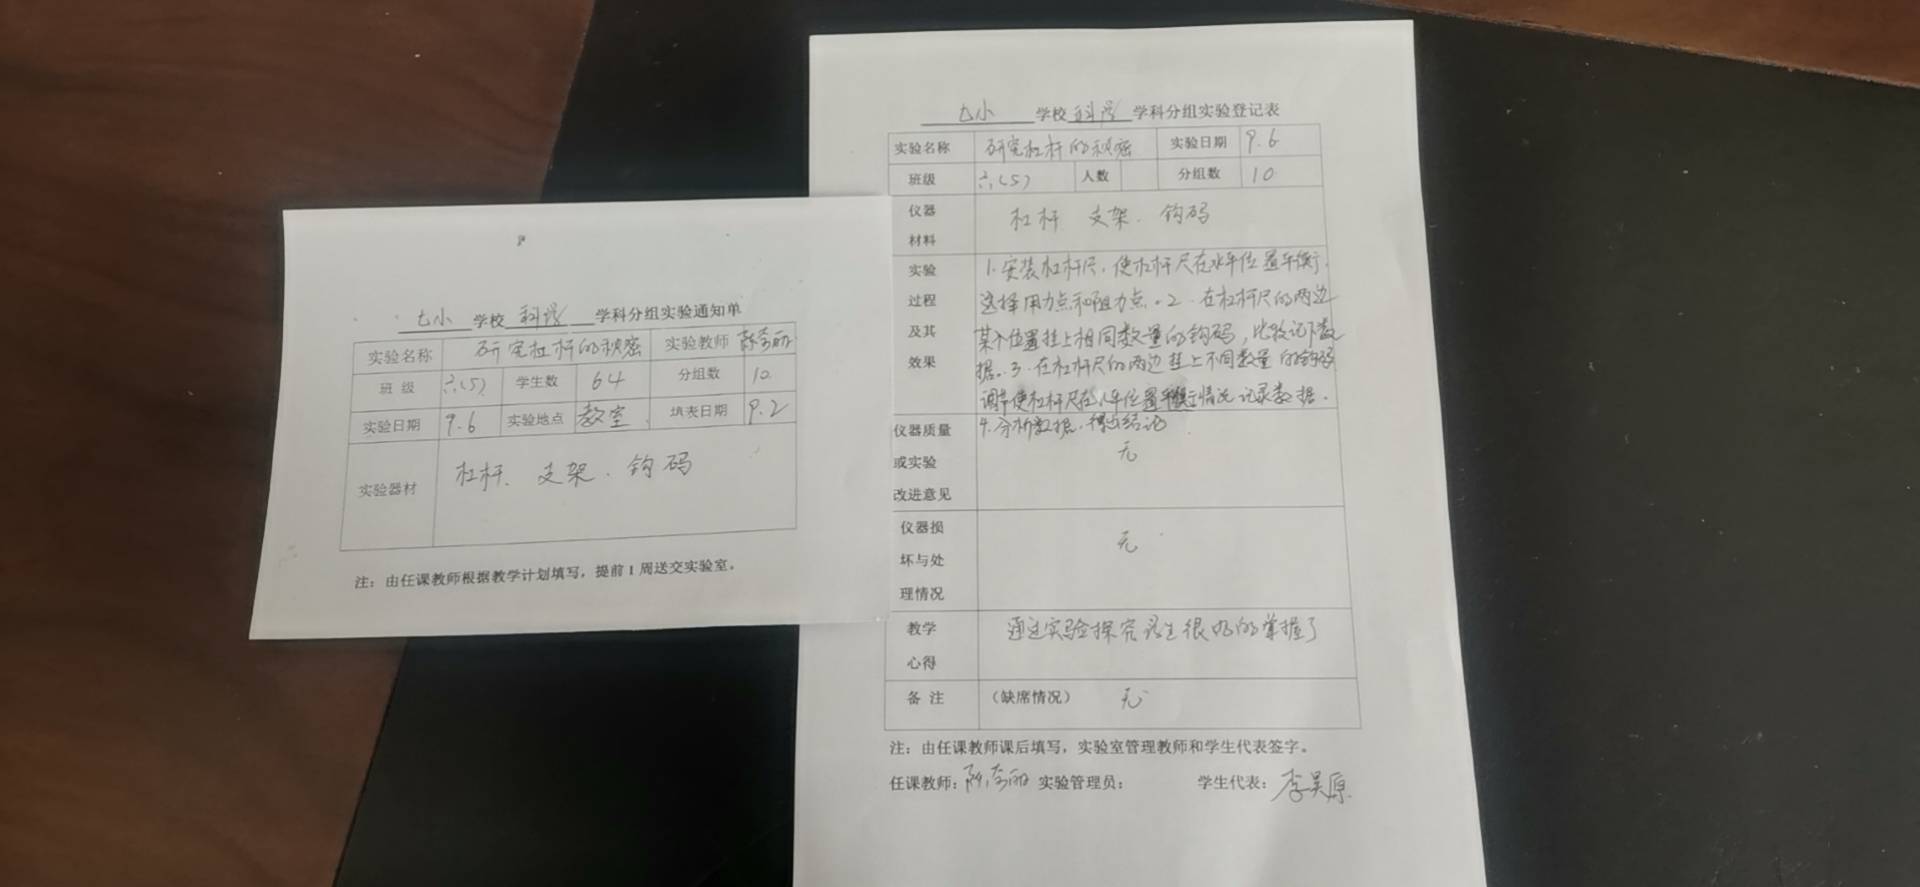 七小 学校 科学 学科分组实验通知单
实验名称 研究杠杆的秘密 实验教师
班 级 六(5) 学生数 64 分组数 10
实验日期 9.6 实验地点 教室 填表日期 9.2
实验器材 杠杆、支架、钩码
注：由任课教师根据教学计划填写，提前1周送交实验室。
七小 学校 科学 学科分组实验登记表
实验名称 研究杠杆的秘密 实验日期 9.6
班级 六(5) 人数 分组数 10
仪器材料 杠杆 支架、钩码
实验过程及其效果
1.安装杠杆尺，使杠杆尺在水平位置平衡，
选择用力点和阻力点。2.在杠杆尺的两边
某个位置挂上相同数量的钩码，比较记下数
据。3.在杠杆尺的两边挂上不同数量的钩码
调节使杠杆尺在水平位置平衡情况记录数据。
4.分析数据，得出结论
仪器质量或实验改进意见 无
仪器损坏与处理情况 无
教学心得 通过实验探究学生很好的掌握了
备 注 （缺席情况） 无
注：由任课教师课后填写，实验室管理教师和学生代表签字。
任课教师： 实验管理员： 学生代表：李昊原